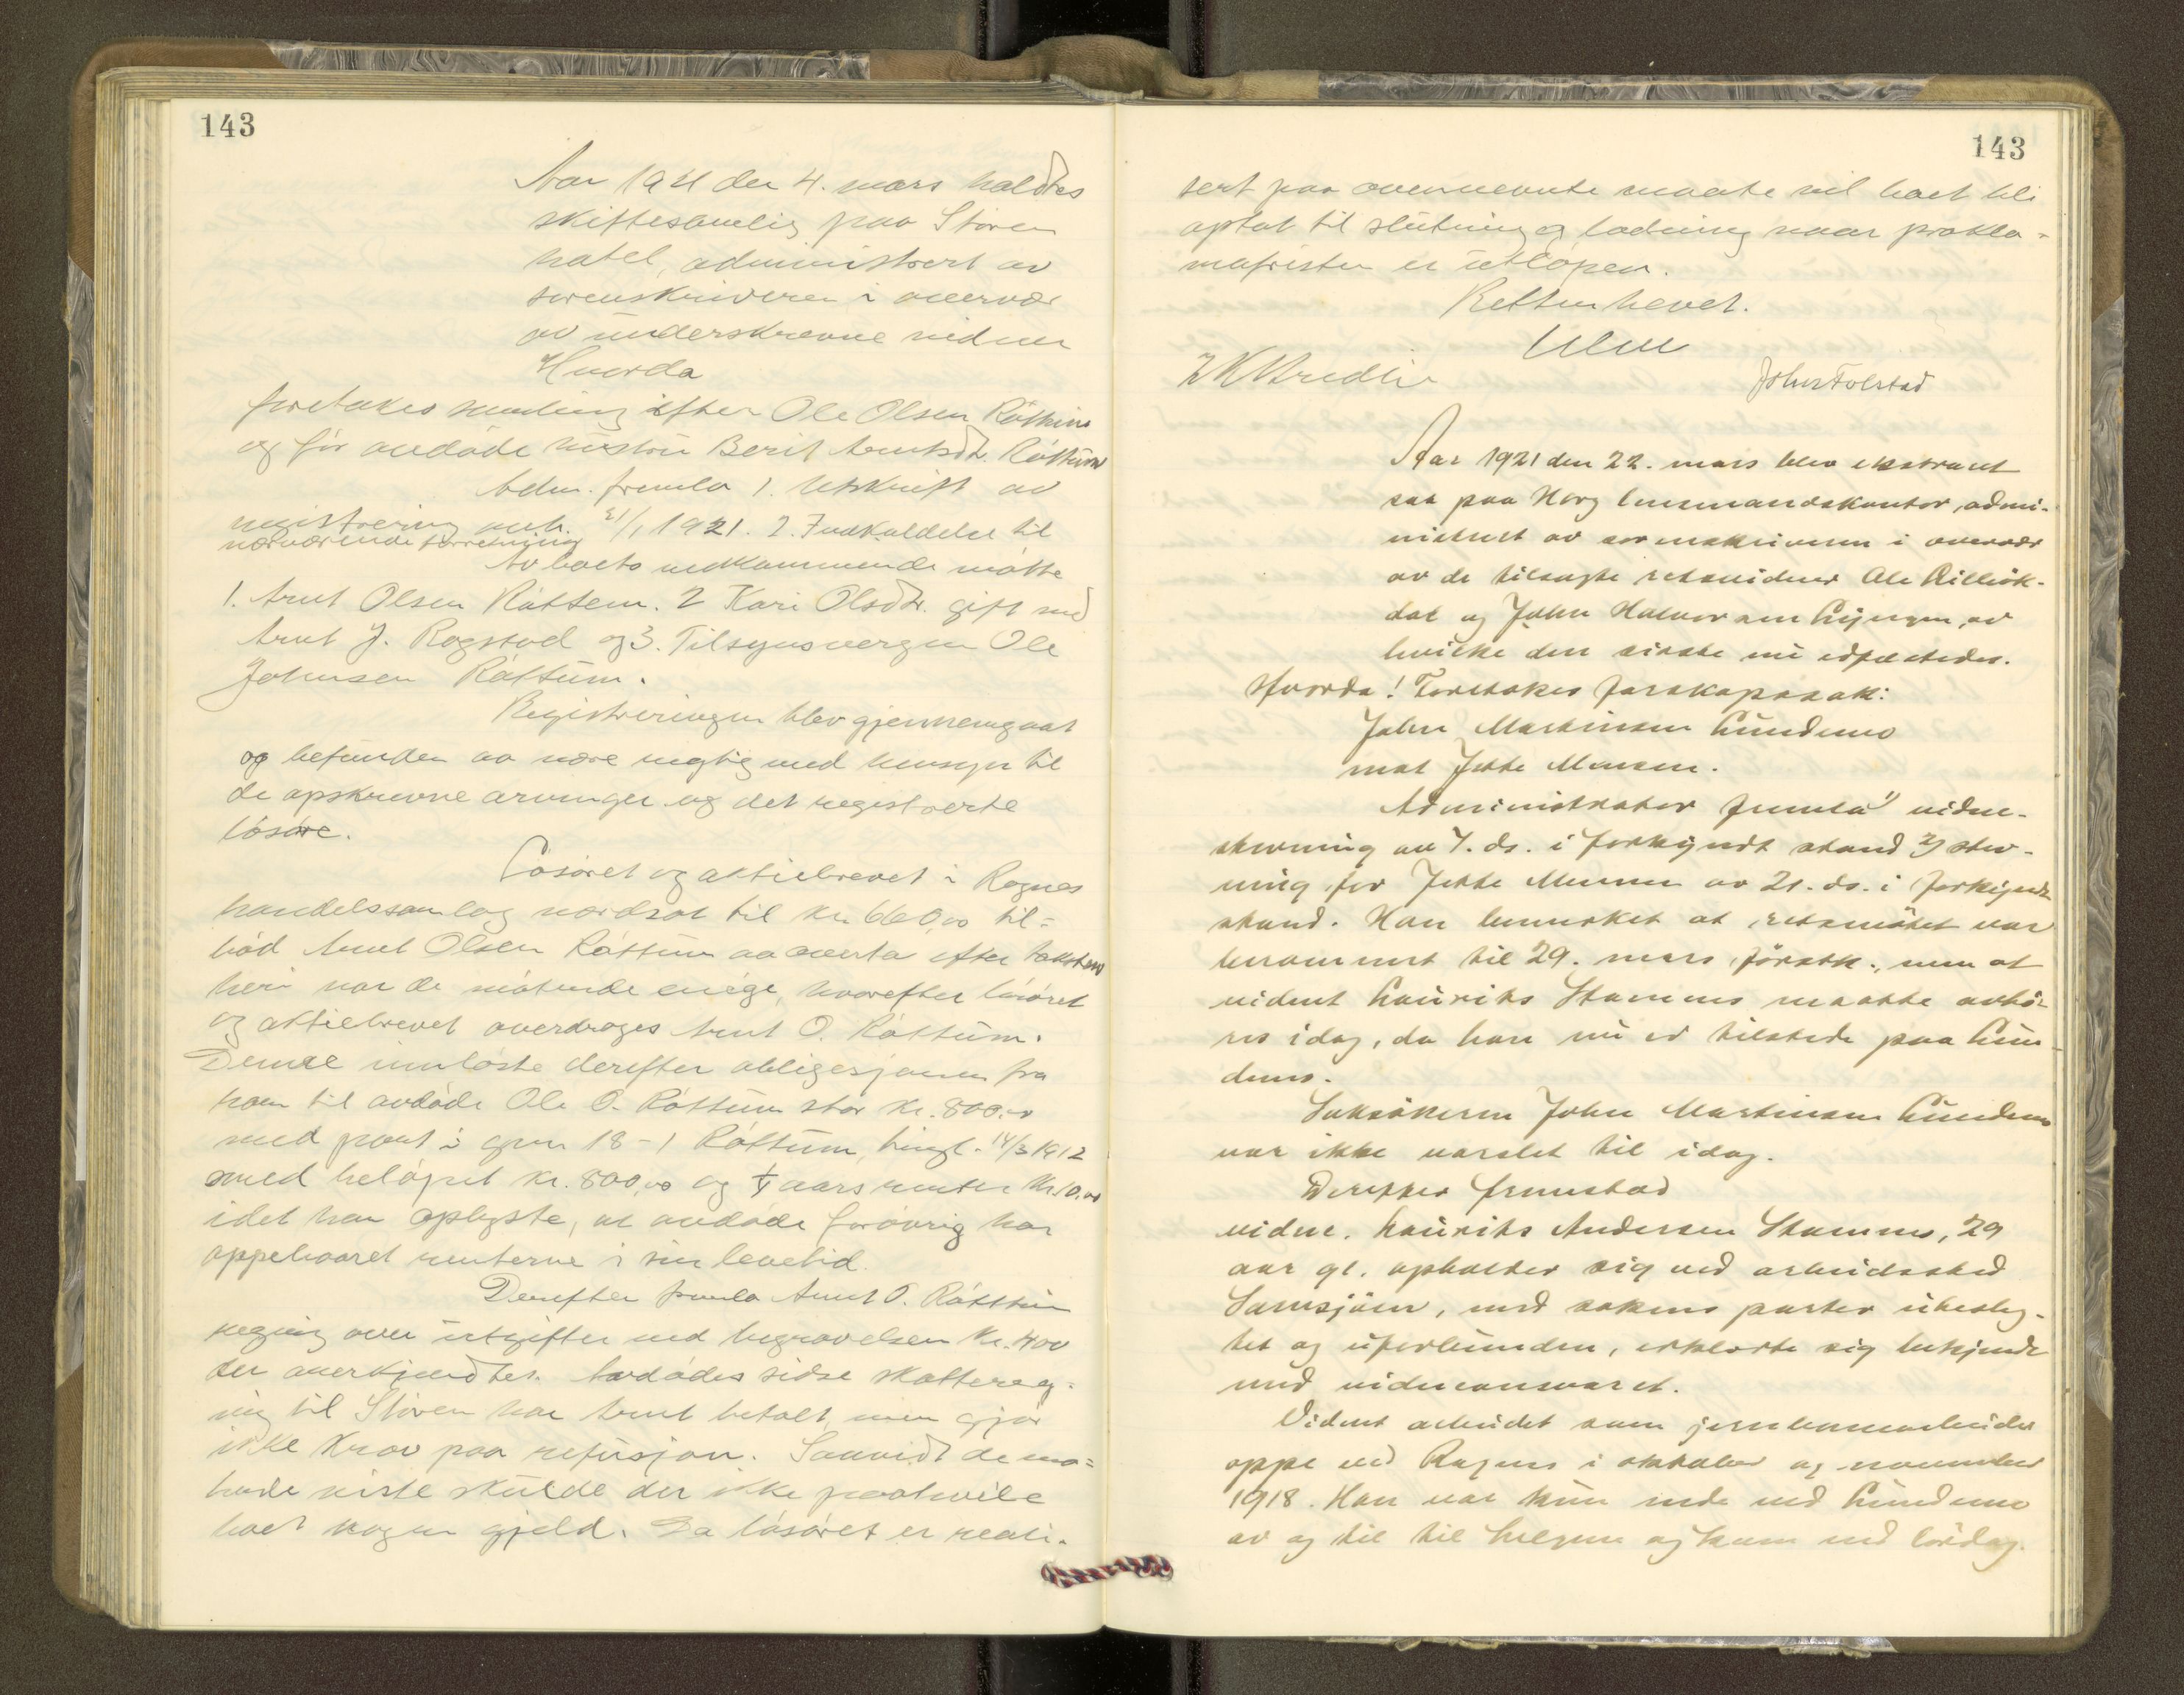 143
Aar 1921 den 4. mars holdtes
skiftesamling paa Støren
hotel, administrert av
sorenskriveren i overvær
av underskrevne vidner
Hvorda
foretokes samling efter Ole Olsen Råttum
og før avdøde hustru Berit Arntsdtr. Råttum
Adm. fremla 1. Utskrift av
registrering avh. 21/1 1921. 2. Indkaldelse til
nærværende forretning
Av boets vedkommende møtte
1. Arnt Olsen Råttum. 2 Kari Olsdtr. gift med
Arnt J. Rogstad og 3. Tilsynsvergen Ole
Johnsen Råttum.
Registreringen blev gjennemgaat
og befunden aa være rigtig med hensyn til
de opskrevne arvinger og det registrerte
løsøre.
Løsøret og aktiebrevet i Rognes
handelssamlag værdsat til kr. 660,00 til-
bød Arnt Olsen Råttum aa overta efter taksten
heri var de møtende enige, hvorefter løsøret
og aktiebrevet overdroges Arnt O. Råttum.
Denne innløste derefter obligasjonen fra
ham til avdøde Ole O. Råttum stor kr. 800.00
med pant i gnr 18-1 Råttum, tingl. 14/3 1912
med beløpet kr. 800,00 og aars renter kr. 10.00
idet han oplyste, at avdøde forøvrig har
oppebaaret renterne i sin levetid.
Derefter fremla Arnt O. Råttum
regning over utgifter ved begravelsen kr. 400
der anerkjendtes. Avdødes sidse skattereg-
ning til Støren har Arnt betalt, men gjør
ikke krav paa refusjon. Saavidt de mø-
tende viste skulde der ikke paahvile
boet nogen gjeld. Da løsøret er reali-
143
sert paa ovennevnte maate vil boet bli
optat til slutning og lodning naar prokla-
mafristen er utløpen.
Retten hevet.
John Folstad
Aar 1921 den 22. mars blev ekstraret
sat paa Horg lensmandskontor, admi-
nistrert av sorenskriveren i overvær
av de tilsagte retsvidner Ole Lilleøk-
dal og John Halvorsen Løngen, av
hvilke den sidste nu edfæstedes.
Hvorda! Foretokes farskapssak:
John Martinsen Lundemo
mot Jette Monsen.
Administrator fremla 1) vidne-
stevning av 7. ds. i forkyndt stand 2) stev-
ning for Jette Monsen av 21. ds. i forkyndt
stand. Han bemerket at retsmøtet var
berammet til 29. mars førstk., men at
vidnet Lauritz Stamnes maatte avhø-
res idag, da han nu er tilstede paa Lun-
demo.
Saksøkeren John Martinsen Lundemo
var ikke varslet til idag.
Derefter fremstod
vidne. Lauritz Andersen Stamnes, 29
aar gl. opholder sig ved arbeidssted
Samsjøen, med sakens parter ubeslег-
tet og uforbunden, erklærte sig bekjendt
med vidneansvaret.
Vidnet arbeidet som jernbanearbeider
oppe ved Rognes i oktober og november
1918. Han var kun nede ved Lundemo
av og til til helgene og kom ned lørdag.